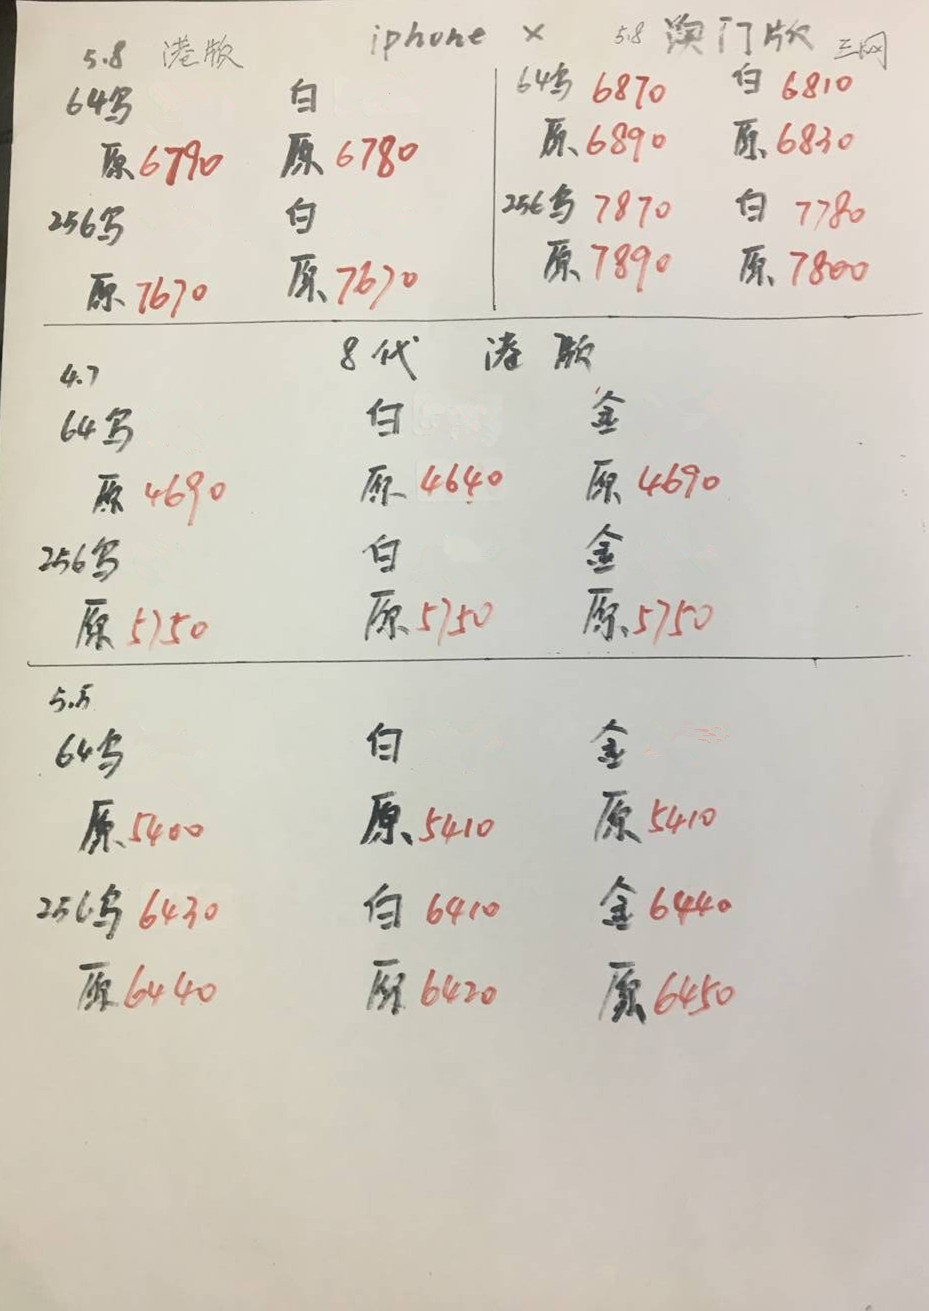 iphone X
5.8 港版
64乌 白
原 6790 原 6780
256乌 白
原 7670 原 7670
5.8 澳门版 三网
64乌 6870 白 6810
原 6890 原 6830
256乌 7870 白 7780
原 7890 原 7800
8代 港版
4.7
64乌 白 金
原 4690 原 4640 原 4690
256乌 白 金
原 5750 原 5750 原 5750
5.5
64乌 白 金
原 5400 原 5410 原 5410
256乌 6430 白 6410 金 6440
原 6440 原 6420 原 6450